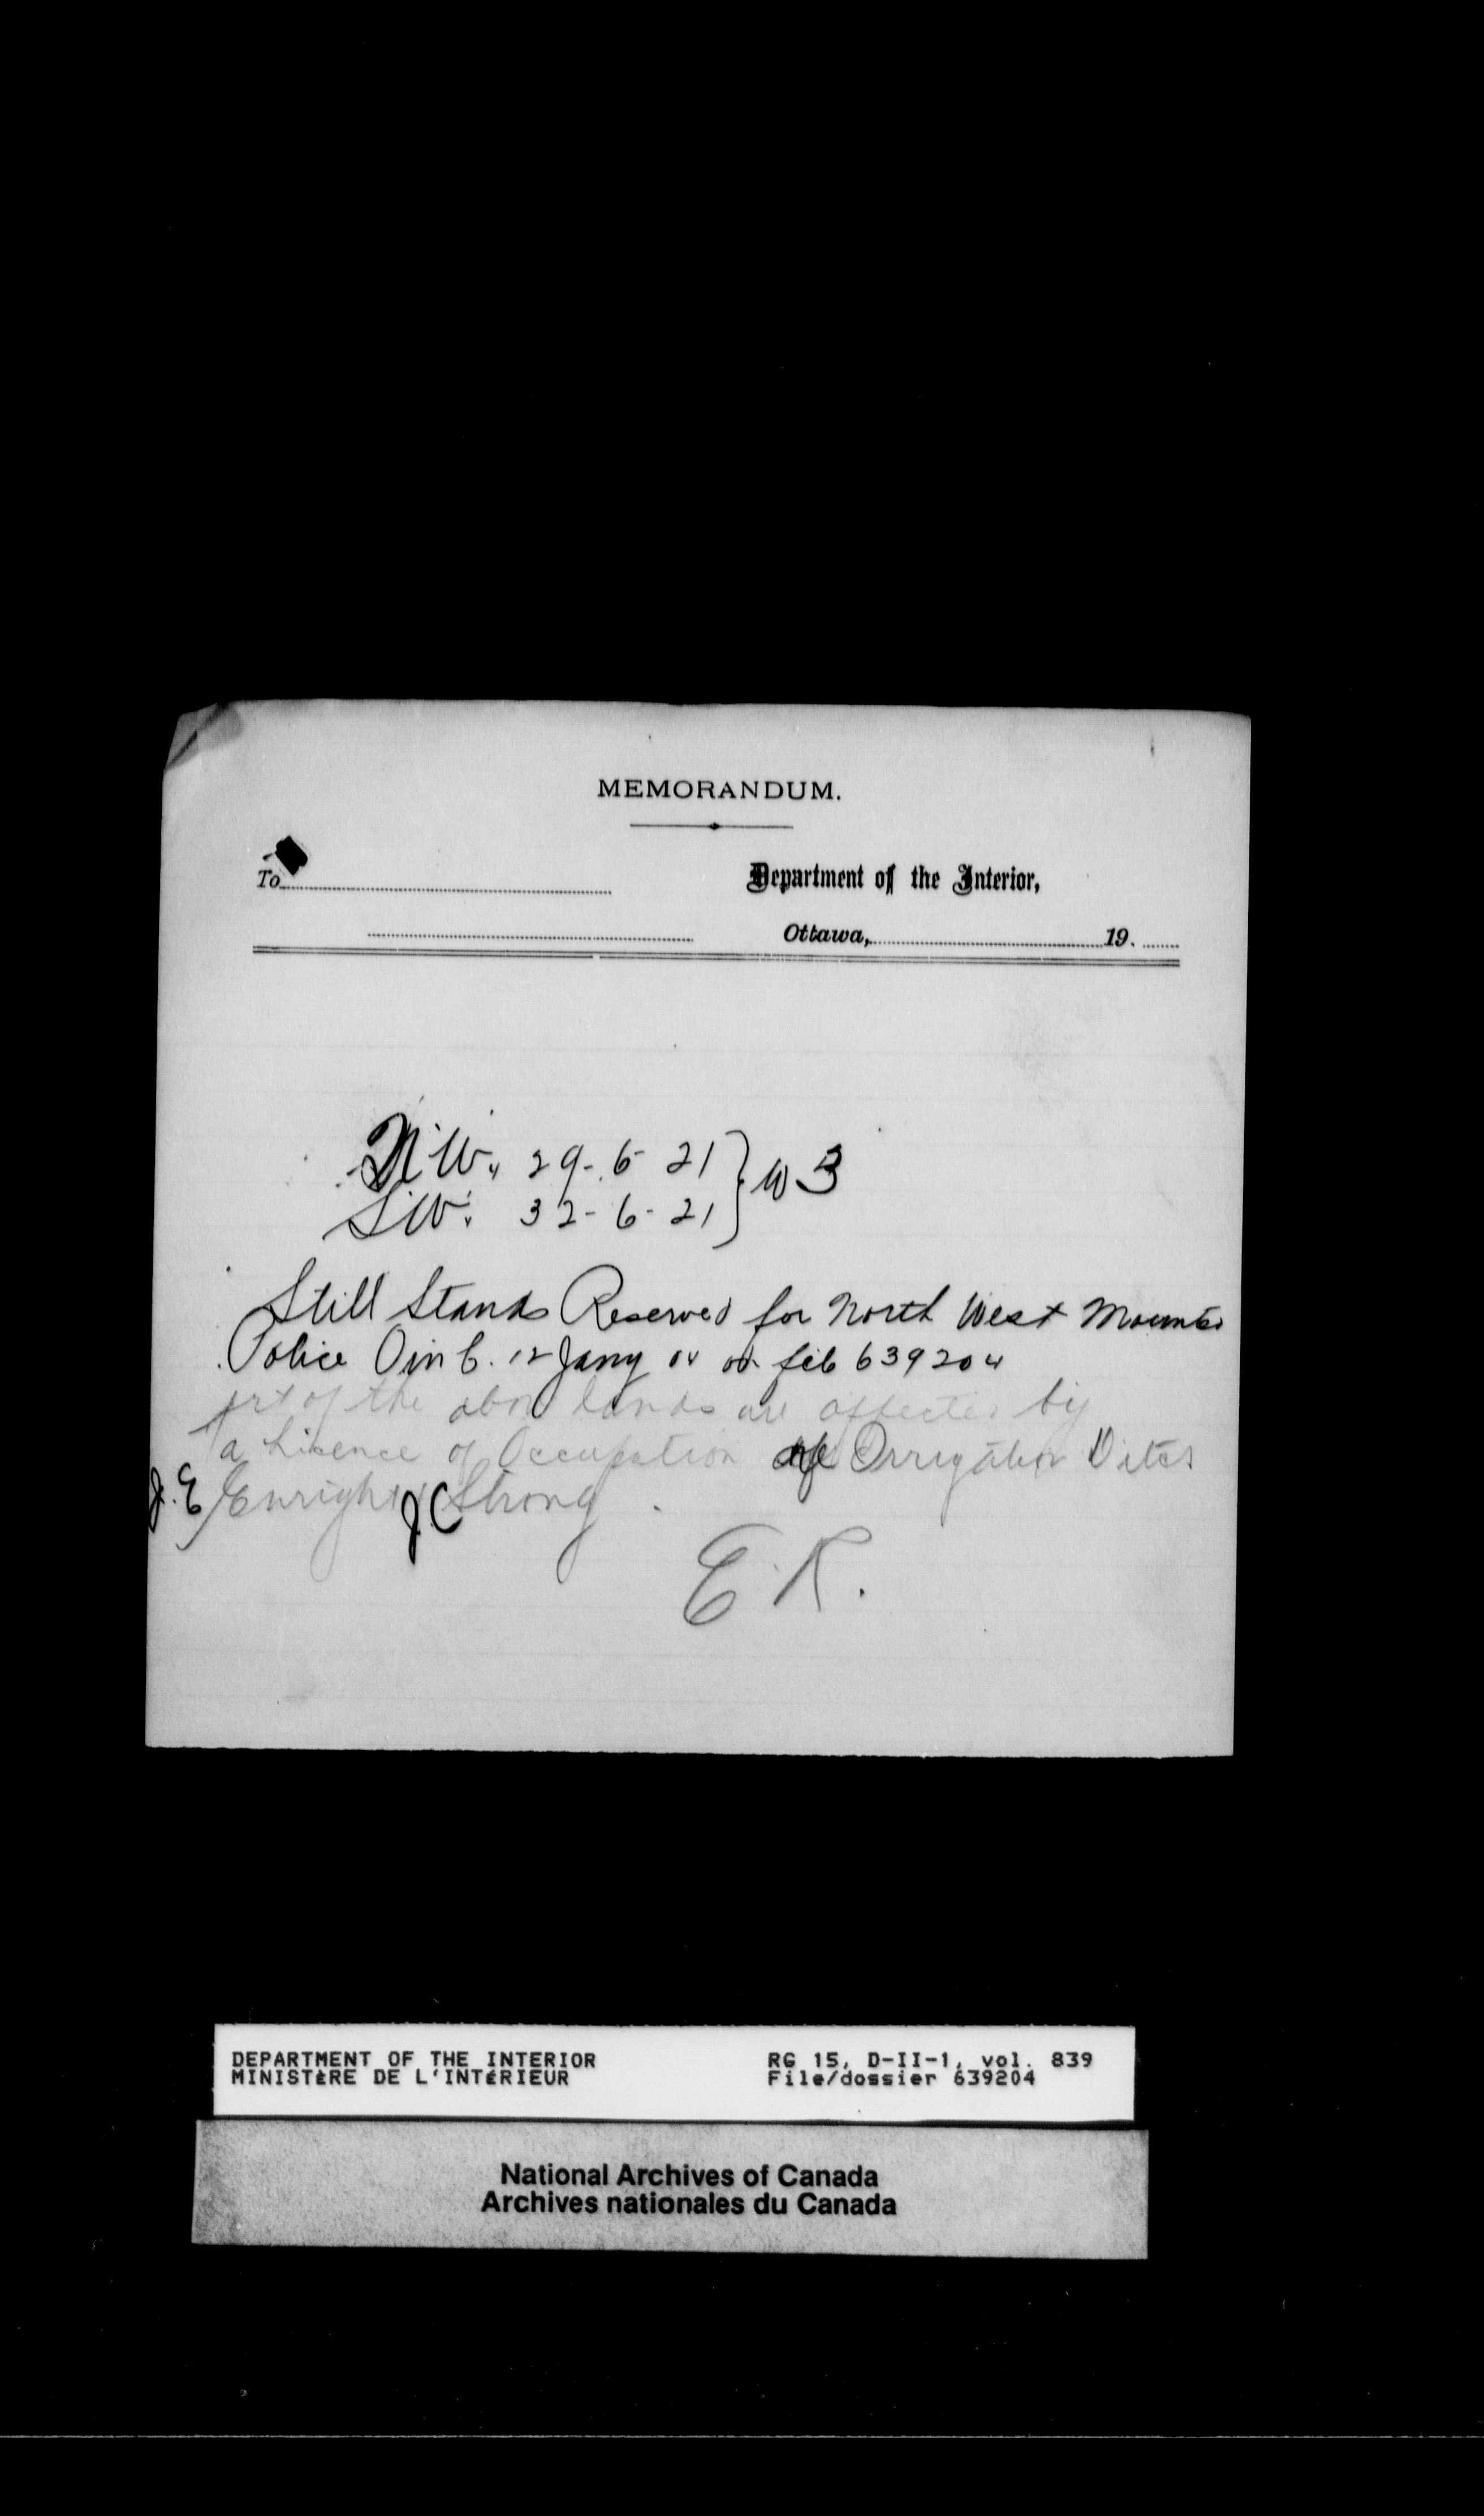 MEMORANDUM.
To
Department of the Interior,
Ottawa, 19.
N.W. 29-6-21 } W 3
S.W. 32-6-21
Still Stands Reserved for North West Mounted
Police O in C. 12 Jany 04 on 639204
prt of the above lands are affected by
a Licence of Occupation Irrigation Ditch
J.E Enright J.C Strong
E.R.
DEPARTMENT OF THE INTERIOR
MINISTÈRE DE L'INTÉRIEUR
RG 15, D-II-1, vol. 839
File/dossier 639204
National Archives of Canada
Archives nationales du Canada